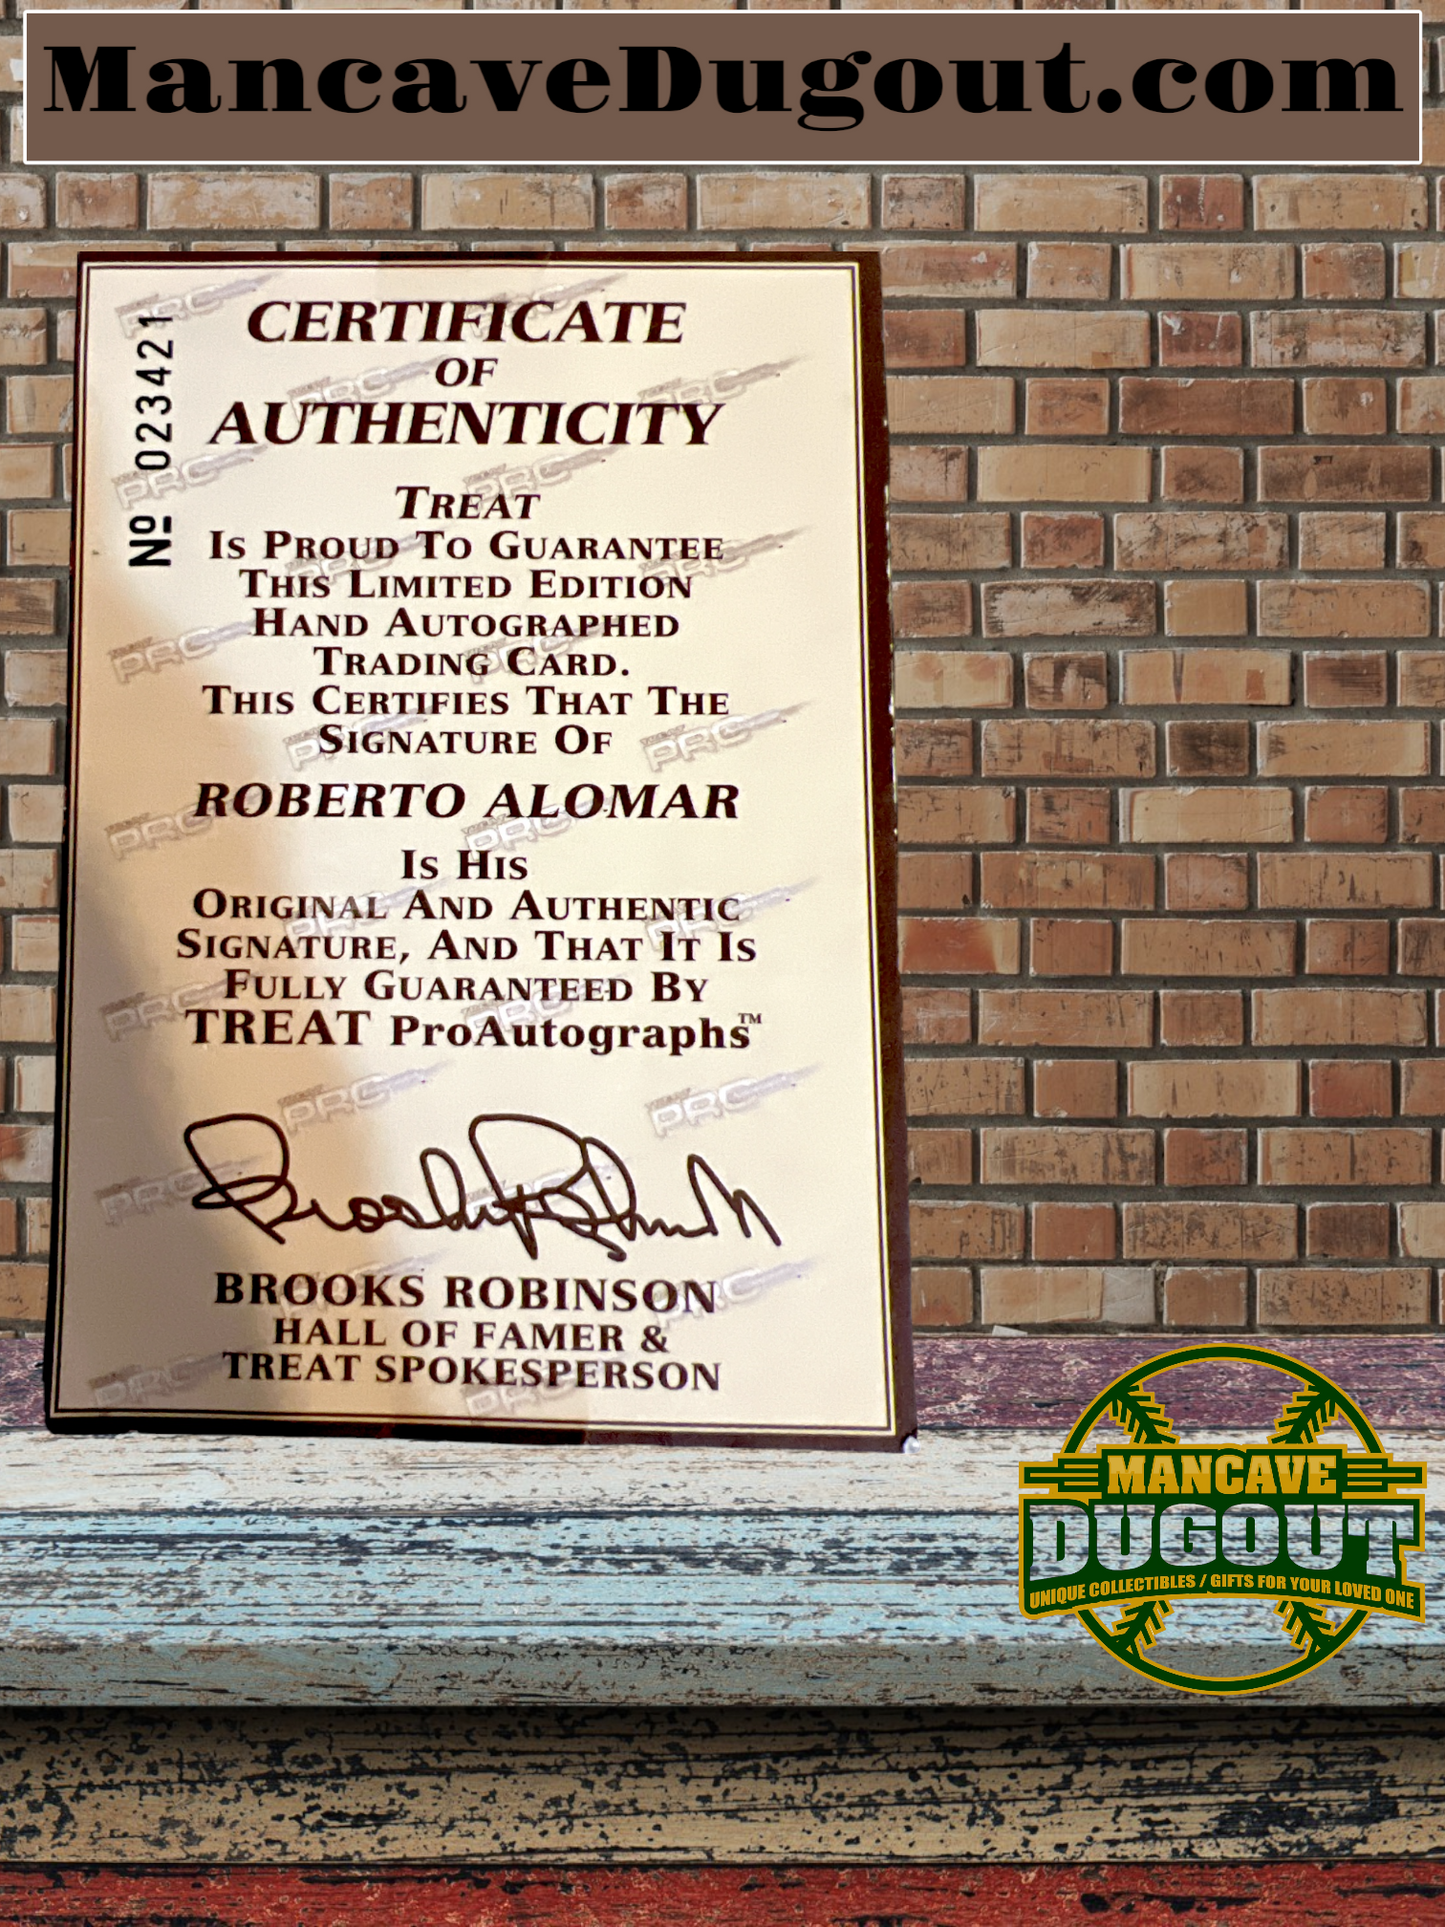 MancaveDugout.com
Nº 023421
CERTIFICATE
OF
AUTHENTICITY
TREAT
IS PROUD TO GUARANTEE
THIS LIMITED EDITION
HAND AUTOGRAPHED
TRADING CARD.
THIS CERTIFIES THAT THE
SIGNATURE OF
ROBERTO ALOMAR
IS HIS
ORIGINAL AND AUTHENTIC
SIGNATURE, AND THAT IT IS
FULLY GUARANTEED BY
TREAT ProAutographs™
BROOKS ROBINSON
HALL OF FAMER &
TREAT SPOKESPERSON
MANCAVE
DUGOUT
UNIQUE COLLECTIBLES / GIFTS FOR YOUR LOVED ONE